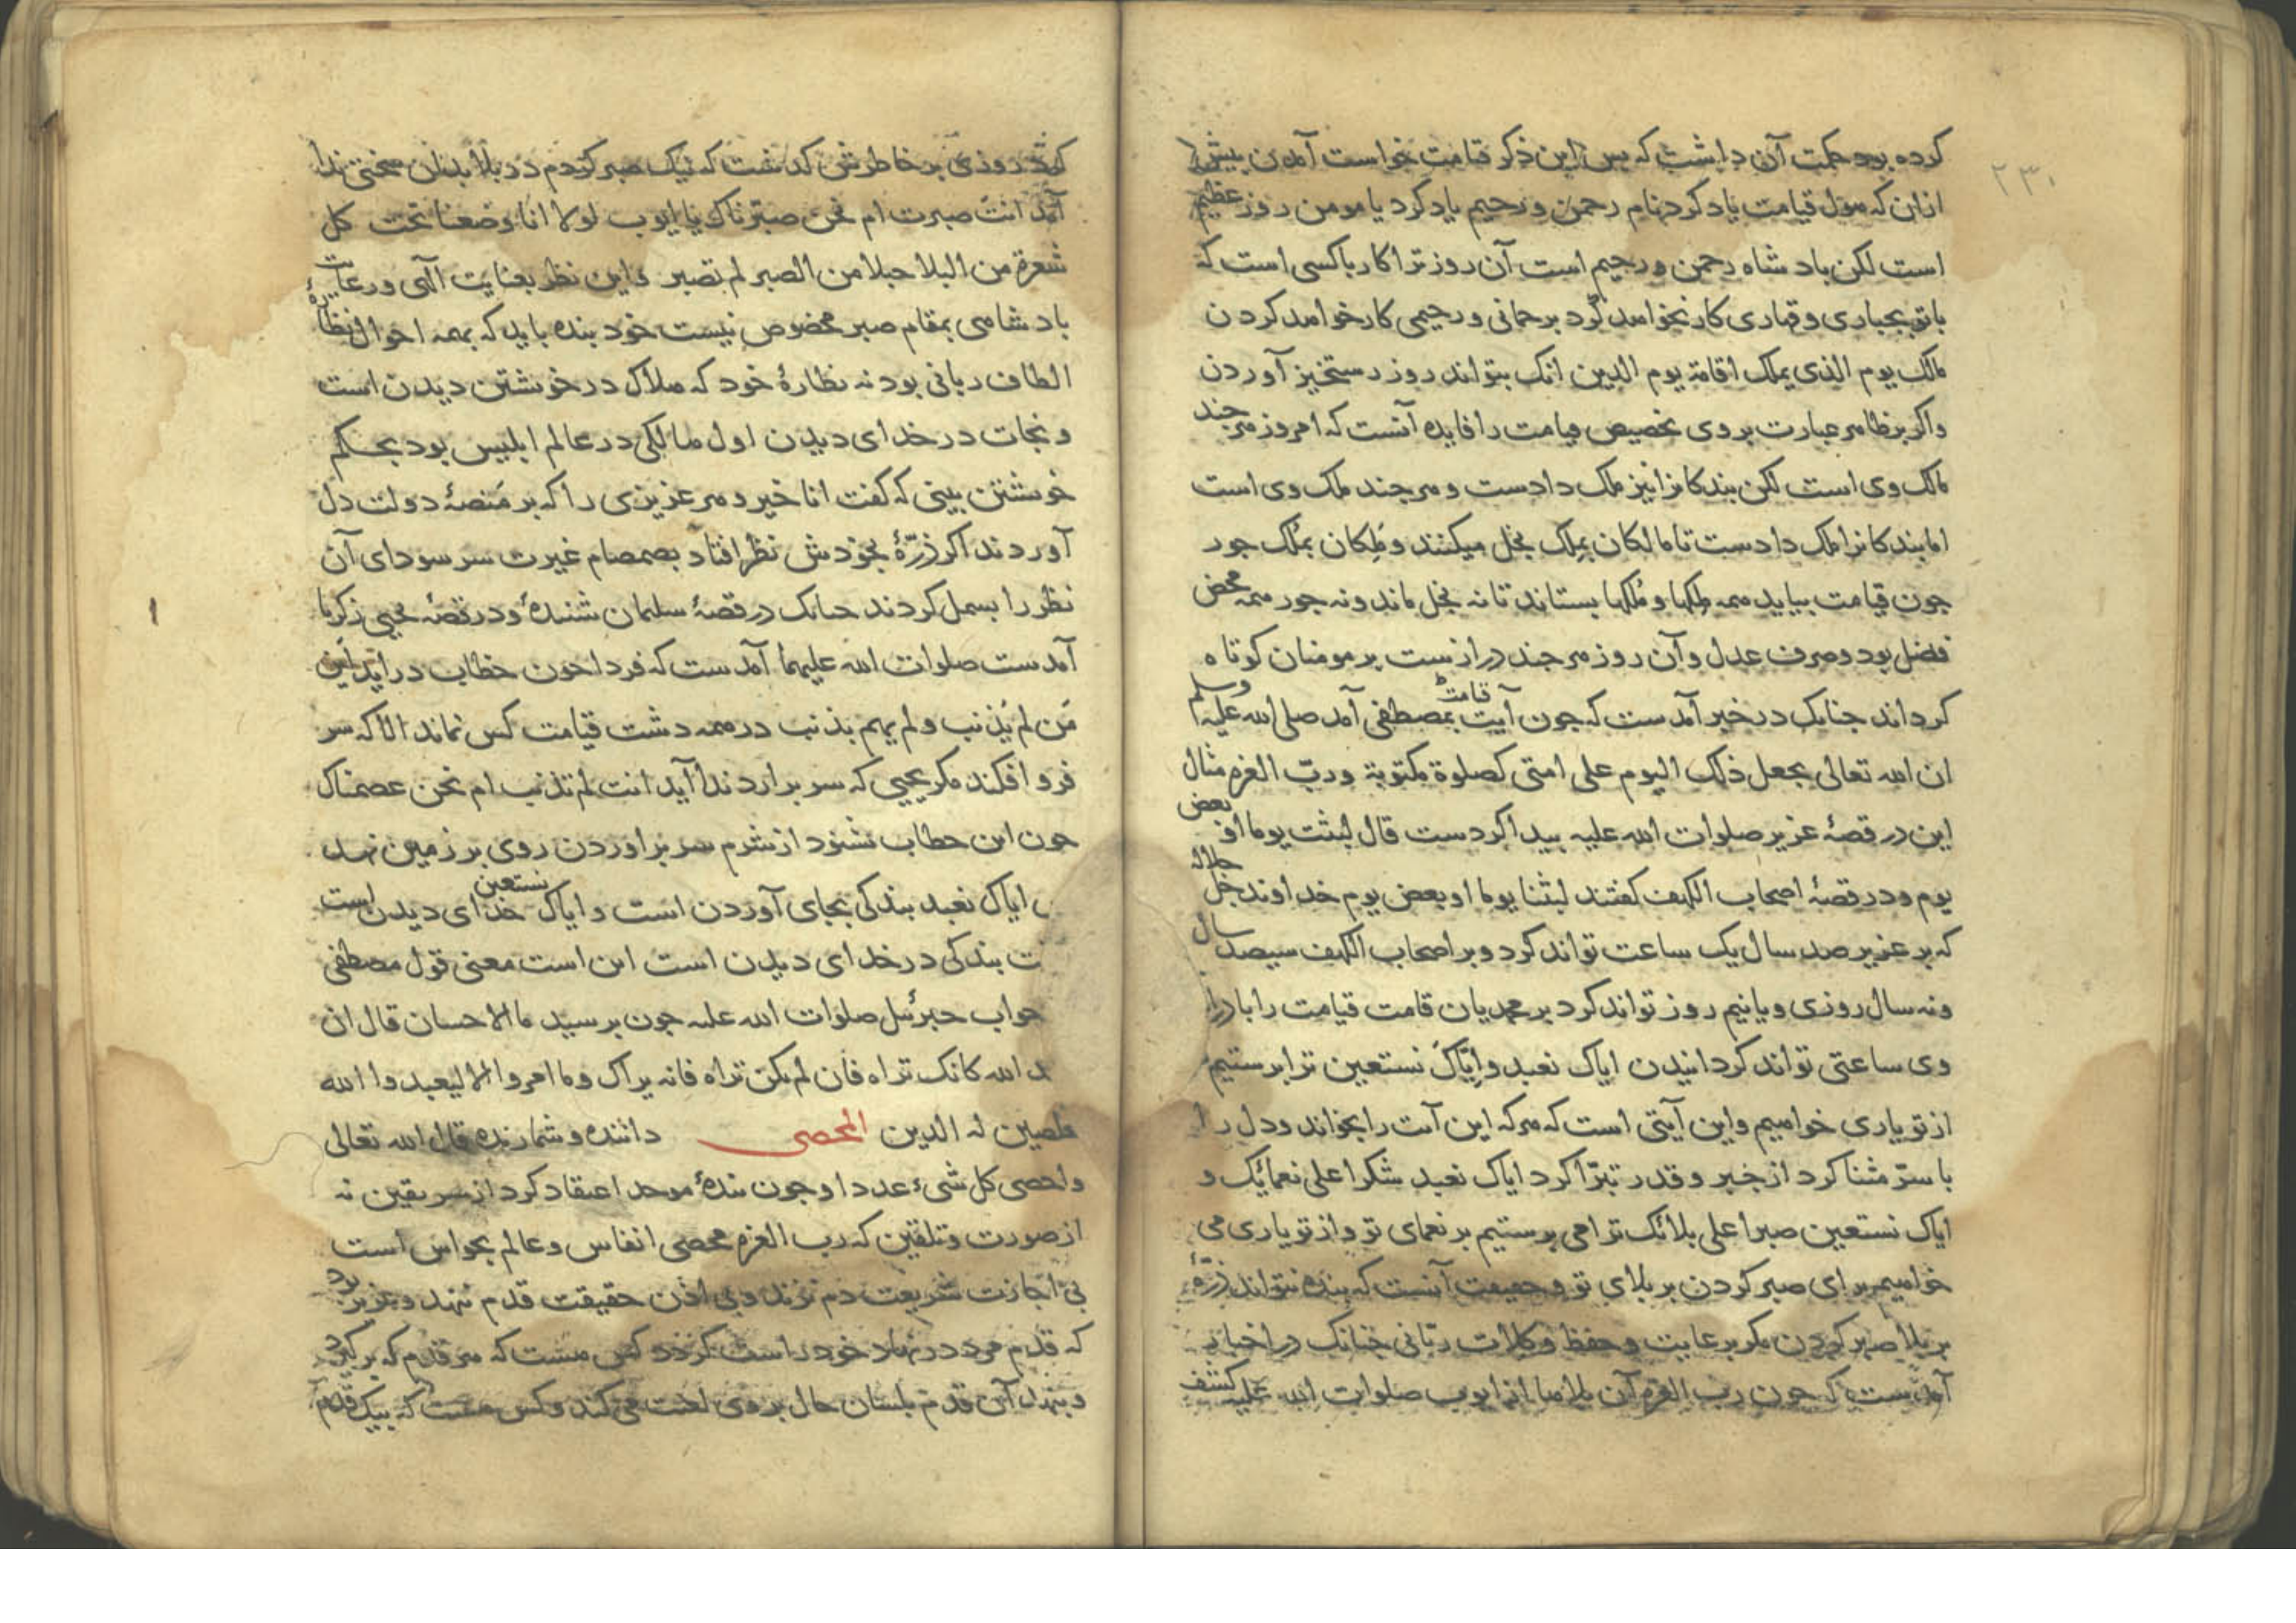 ۲۳۰
کرده بود حکمت آن داشت که پس ازین ذکر قیامت خواست آمدن پیش
ازان که هول قیامت یاد کرد بنام رحمن و رحیم یاد کرد یا مومن روز عظیم
است لکن بادشاه رحمن و رحیم است آن روز ترا کار با کسی است که
با تو بجباری و قهاری کار نخواهد کرد برحمانی و رحیمی کار خواهد کردن
مالک یوم الذی یملک اقامة یوم الدین انک بتواند روز رستخیز آوردن
واکر بر ظاهر عبارت بروی تخصیص قیامت را فایده آنست که امروز هرچند
مالک وی است لکن بندکانرا نیز ملک دادست و هرچند ملک وی است
اما بندکانرا ملک دادست تا مالکان بمِلک بخل میکنند و مَلِکان بمُلک جور
جون قیامت بیاید همه مِلکها و مُلکها بستاند تا نه بخل ماند و نه جور همه محض
فضل بود و صرف عدل و آن روز هرجند درازست بر مومنان کوتاه
کرداند جنانک در خبر آمدست که جون آیت قیامت بمصطفی آمد صلی الله علیه وسلم
ان الله تعالی یجعل ذلک الیوم علی امتی کصلوة مکتوبة و ربّ العزه مثال
این در قصهٔ عزیر صلوات الله علیه پیدا کردست قال لبثت یوما او بعض
یوم و در قصهٔ اصحاب الکهف کفتند لبثنا یوما او بعض یوم خداوند جل جلاله
که بر عزیر صد سال یک ساعت تواند کرد و بر اصحاب الکهف سیصد سال
و نه سال روزی و یا نیم روز تواند کرد بر محمدیان قامت قیامت را با درازی
وی ساعتی تواند کردانیدن ایاک نعبد و ایّاک نستعین ترا پرستیم
از تو یاری خواهیم و این آیتی است که هرکه این آیت را بخواند و دل را
با سرّ مثنا کرد از خیر و قدر تبرّا کرد ایاک نعبد شکرا علی نعمائک و
ایاک نستعین صبرا علی بلائک ترا می پرستیم بر نعمای تو و از تو یاری می
خواهیم برای صبر کردن بر بلای تو و حقیقت آنست که بنده نتواند ذرّهٔ
بر بلا صبر کردن مکر برعایت و حفظ و کلاءت ربّانی جنانک در اخبار
آمدست که جون رب العزه آن بلاها از ایوب صلوات الله علیه کشف
کرد روزی بر خاطرش کذشت که نیک صبر کردم در بلا بدان سختی ندا
آمد انت صبرت ام نحن صبرناک یا ایوب لولا انا وضعنا تحت کل
شعرة من البلا جبلا من الصبر لم تصبر و این نظر بعنایت الهی و رعایت
بادشاهی بمقام صبر مخصوص نیست خود بنده باید که بهمه احوال نظارهٔ
الطاف ربانی بود نه نظارهٔ خود که هلاک در خویشتن دیدن است
و نجات در خدای دیدن اول هالکی در عالم ابلیس بود بحکم
خویشتن بینی که کفت انا خیر و هر عزیزی را که بر مَنصهٔ دولت دل
آوردند اکر ذرّهٔ بخودش نظر افتاد بصمصام غیرت سر سودای آن
نظر را بسمل کردند جنانک در قصهٔ سلیمان شنیدهٔ و در قصهٔ یحیی زکریا
آمدست صلوات الله علیهما آمدست که فردا جون خطاب دراید این
مَن لم یُذنب و لم یهم بذنب در همه دشت قیامت کس نماند الا که سر
فرو افکند مکر یحیی که سر برارد ندا آید انت لم تذنب ام نحن عصمناک
جون این خطاب بشنود از شرم سر براوردن روی بر زمین نهد
ایاک نعبد بندکی بجای آوردن است و ایاک نستعین خدای دیدن است
بندکی در خدای دیدن است این است معنی قول مصطفی
جواب جبرئیل صلوات الله علیه جون پرسید ما الاحسان قال ان
الله کانک تراه فان لم تکن تراه فانه یراک و ما امروا الا لیعبدوا الله
مخلصین له الدین المحصی داننده و شمارنده قال الله تعالی
واحصی کل شیء عددا و جون بندهٔ موحد اعتقاد کرد از سر یقین نه
از صورت و تلقین که رب العزه محصی انفاس و عالم بحواس است
بی اجازت شریعت دم نزند و بی اذن حقیقت قدم ننهد و عزیز
که قدم مرد در نهاد خود راست کس هست که هر قدم که برکیرد
و بنهد آن قدم بلسان حال بر وی لعنت می کند و کس هست که بیک قدم